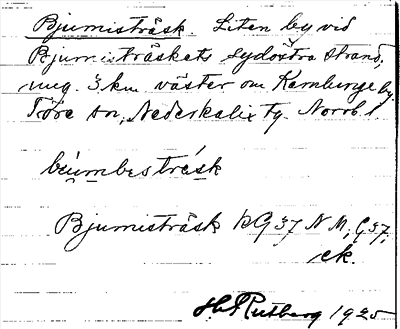 Bjumisträsk. Liten by vid
Bjumisträskets sydöstra strand,
ung. 3 km väster om Kamlunge by.
Töre sn, Nederkalix tg. Norrb. l
Bjumisträsk RG 37 NM, G 37,
ck.
H. Rutberg 1925